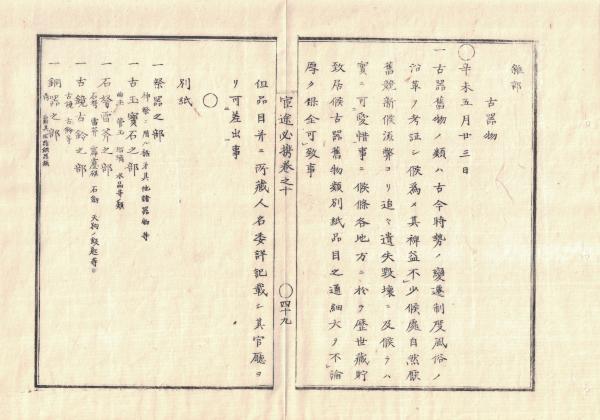 雜部
古器物
〇辛未五月廿三日
一古器舊物ノ類ハ古今時勢ノ變遷制度風俗ノ
沿革ヲ考証シ候爲メ其裨益不少候處自然厭
舊競新候流弊ヨリ追々遺失毀壞ニ及候テハ
實ニ可愛惜事ニ候條各地方ニ於テ歷世藏貯
致居候古器舊物類別紙品目之通細大ヲ不論
厚ク保全可致事
官途必携卷之十
〇四十九
但品目并ニ所藏人名委詳記載シ其官廳ヨ
リ可差出事
〇
別紙
一祭器之部
神祭ニ用ル楯矛其他諸器物等
一古玉寶石之部
曲玉 管玉 瑠璃 水晶等ノ類
一石弩雷斧之部
石弩 雷斧 霹靂碪 石劔 天狗ノ飯匙等
一古鏡古鈴之部
古鏡 古鈴等
一銅器之部